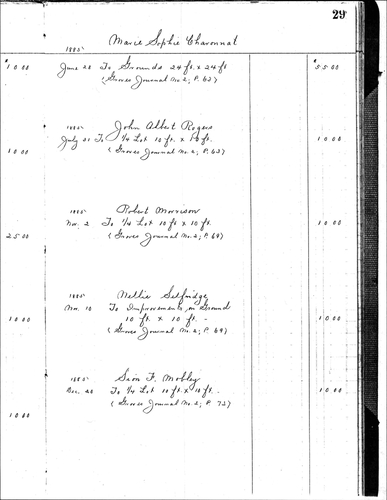 29
Marie Sophie Charonnat
1885
1000 June 20 To Grounds 24 ft. x 24 ft $ 5500
(Graves Journal No. 2; P. 62)
1885 John Albert Rogers
July 21 To 1/4 Lot 10 ft. x 10 ft. 1000
1000 (Graves Journal No. 2; P. 63)
1885 Robert Morrison
Nov. 2 To 1/4 Lot 10 ft x 10 ft. 1000
2500 (Graves Journal No. 2; P. 69)
1885 Nellie Selfridge
Nov. 10 To Improvements on Ground
1000 10 ft. x 10 ft. - 1000
(Graves Journal No. 2; P. 69)
1885 Sion F. Mobley
Dec. 20 To 1/4 Lot 10 ft. x 10 ft. - 1000
(Graves Journal No. 2; P. 72)
1000